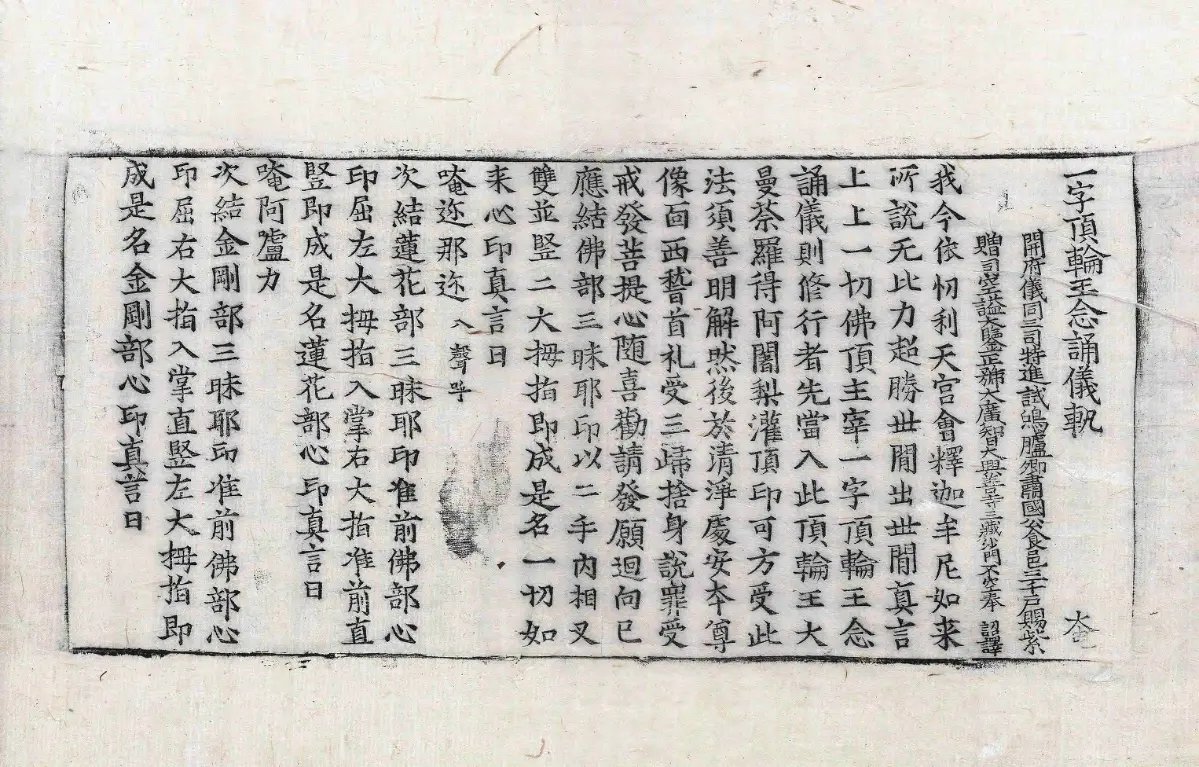 一字頂輪王念誦儀軌
夲
開府儀同三司特進試鴻臚卿肅國公食邑三千戶賜紫
贈司空諡大鑒正號大廣智大興善寺三藏沙門不空奉 詔譯
我今依忉利天宮會釋迦牟尼如来
所說无比力超勝世間出世間真言
上上一切佛頂主宰一字頂輪王念
誦儀則修行者先當入此頂輪王大
曼荼羅得阿闍梨灌頂印可方受此
法須善明解然後於清淨處安夲尊
像面西䭫首礼受三歸捨身說罪受
戒發菩提心随喜勸請發願迴向已
應結佛部三昧耶印以二手内相叉
雙並竪二大拇指即成是名一切如
来心印真言曰
唵迩那迩 入聲呼
次結蓮花部三昧耶印准前佛部心
印屈左大拇指入掌右大指准前直
竪即成是名蓮花部心印真言曰
唵阿盧力
次結金剛部三昧耶印准前佛部心
印屈右大指入掌直竪左大拇指即
成是名金剛部心印真言曰